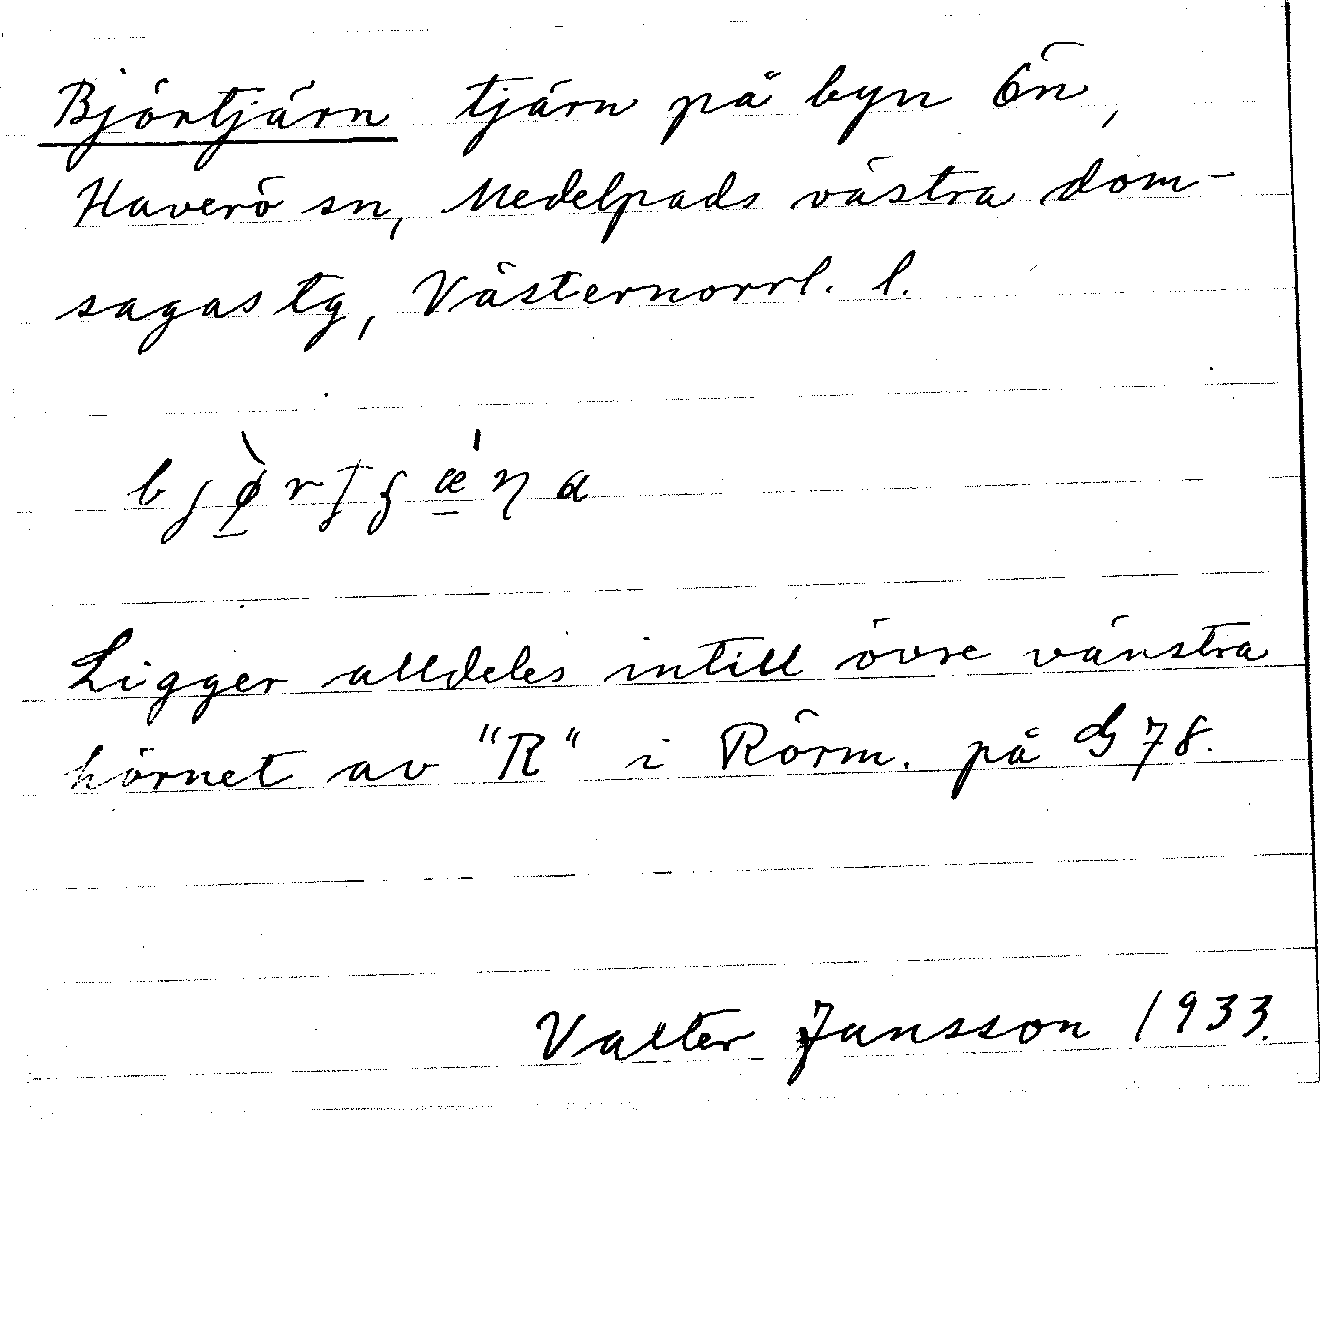 Björtjärn tjärn på byn Ön,
Haverö sn, Medelpads västra dom-
sagas tg, Västernorrl. l.
Ligger alldeles intill övre vänstra
hörnet av "R" i Rörm. på G 78.
Valter Jansson 1933.